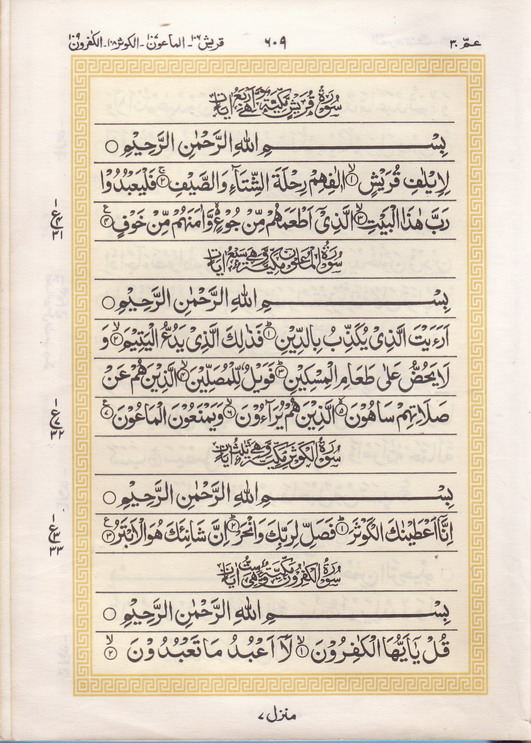 عمّ ٣٠
٦٠٩
قريش ١٠٦ - الماعون ١٠٧ - الكوثر ١٠٨ - الكٰفرون ١٠٩
سُوْرَةُ قُرَيْشٍ مَّكِّيَّةٌ وَّهِيَ اَرْبَعُ اٰيَاتٍ
بِسْـــــــــمِ اللهِ الرَّحْمٰنِ الرَّحِيْمِ ○
لِاِيْلٰفِ قُرَيْشٍ ۙ‏﴿۱﴾ اٖلٰفِهِمْ رِحْلَةَ الشِّتَآءِ وَالصَّيْفِ ۚ‏﴿۲﴾ فَلْيَعْبُدُوْا
رَبَّ هٰذَا الْبَيْتِ ۙ‏﴿۳﴾ الَّذِيْۤ اَطْعَمَهُمْ مِّنْ جُوْعٍ ۙ وَّاٰمَنَهُمْ مِّنْ خَوْفٍ ﴿۴﴾
ع
٤
٣١
سُوْرَةُ الْمَاعُوْنِ مَكِّيَّةٌ وَّهِيَ سَبْعُ اٰيَاتٍ
بِسْـــــــــمِ اللهِ الرَّحْمٰنِ الرَّحِيْمِ ○
اَرَءَيْتَ الَّذِيْ يُكَذِّبُ بِالدِّيْنِ ؕ‏﴿۱﴾ فَذٰلِكَ الَّذِيْ يَدُعُّ الْيَتِيْمَ ۙ‏﴿۲﴾ وَ
لَا يَحُضُّ عَلٰى طَعَامِ الْمِسْكِيْنِ ؕ‏﴿۳﴾ فَوَيْلٌ لِّلْمُصَلِّيْنَ ۙ‏﴿۴﴾ الَّذِيْنَ هُمْ عَنْ
صَلَاتِهِمْ سَاهُوْنَ ۙ‏﴿۵﴾ الَّذِيْنَ هُمْ يُرَآءُوْنَ ۙ‏﴿۶﴾ وَيَمْنَعُوْنَ الْمَاعُوْنَ ﴿۷﴾
ع
٧
٣٢
سُوْرَةُ الْكَوْثَرِ مَكِّيَّةٌ وَّهِيَ ثَلٰثُ اٰيَاتٍ
بِسْـــــــــمِ اللهِ الرَّحْمٰنِ الرَّحِيْمِ ○
اِنَّاۤ اَعْطَيْنٰكَ الْكَوْثَرَ ؕ‏﴿۱﴾ فَصَلِّ لِرَبِّكَ وَانْحَرْ ؕ‏﴿۲﴾ اِنَّ شَانِئَكَ هُوَ الْاَبْتَرُ ﴿۳﴾
ع
٣
٣٣
سُوْرَةُ الْكٰفِرُوْنَ مَكِّيَّةٌ وَّهِيَ سِتُّ اٰيَاتٍ
بِسْـــــــــمِ اللهِ الرَّحْمٰنِ الرَّحِيْمِ ○
قُلْ يٰۤاَيُّهَا الْكٰفِرُوْنَ ۙ‏﴿۱﴾ لَاۤ اَعْبُدُ مَا تَعْبُدُوْنَ ۙ‏﴿۲﴾
منزل ٧